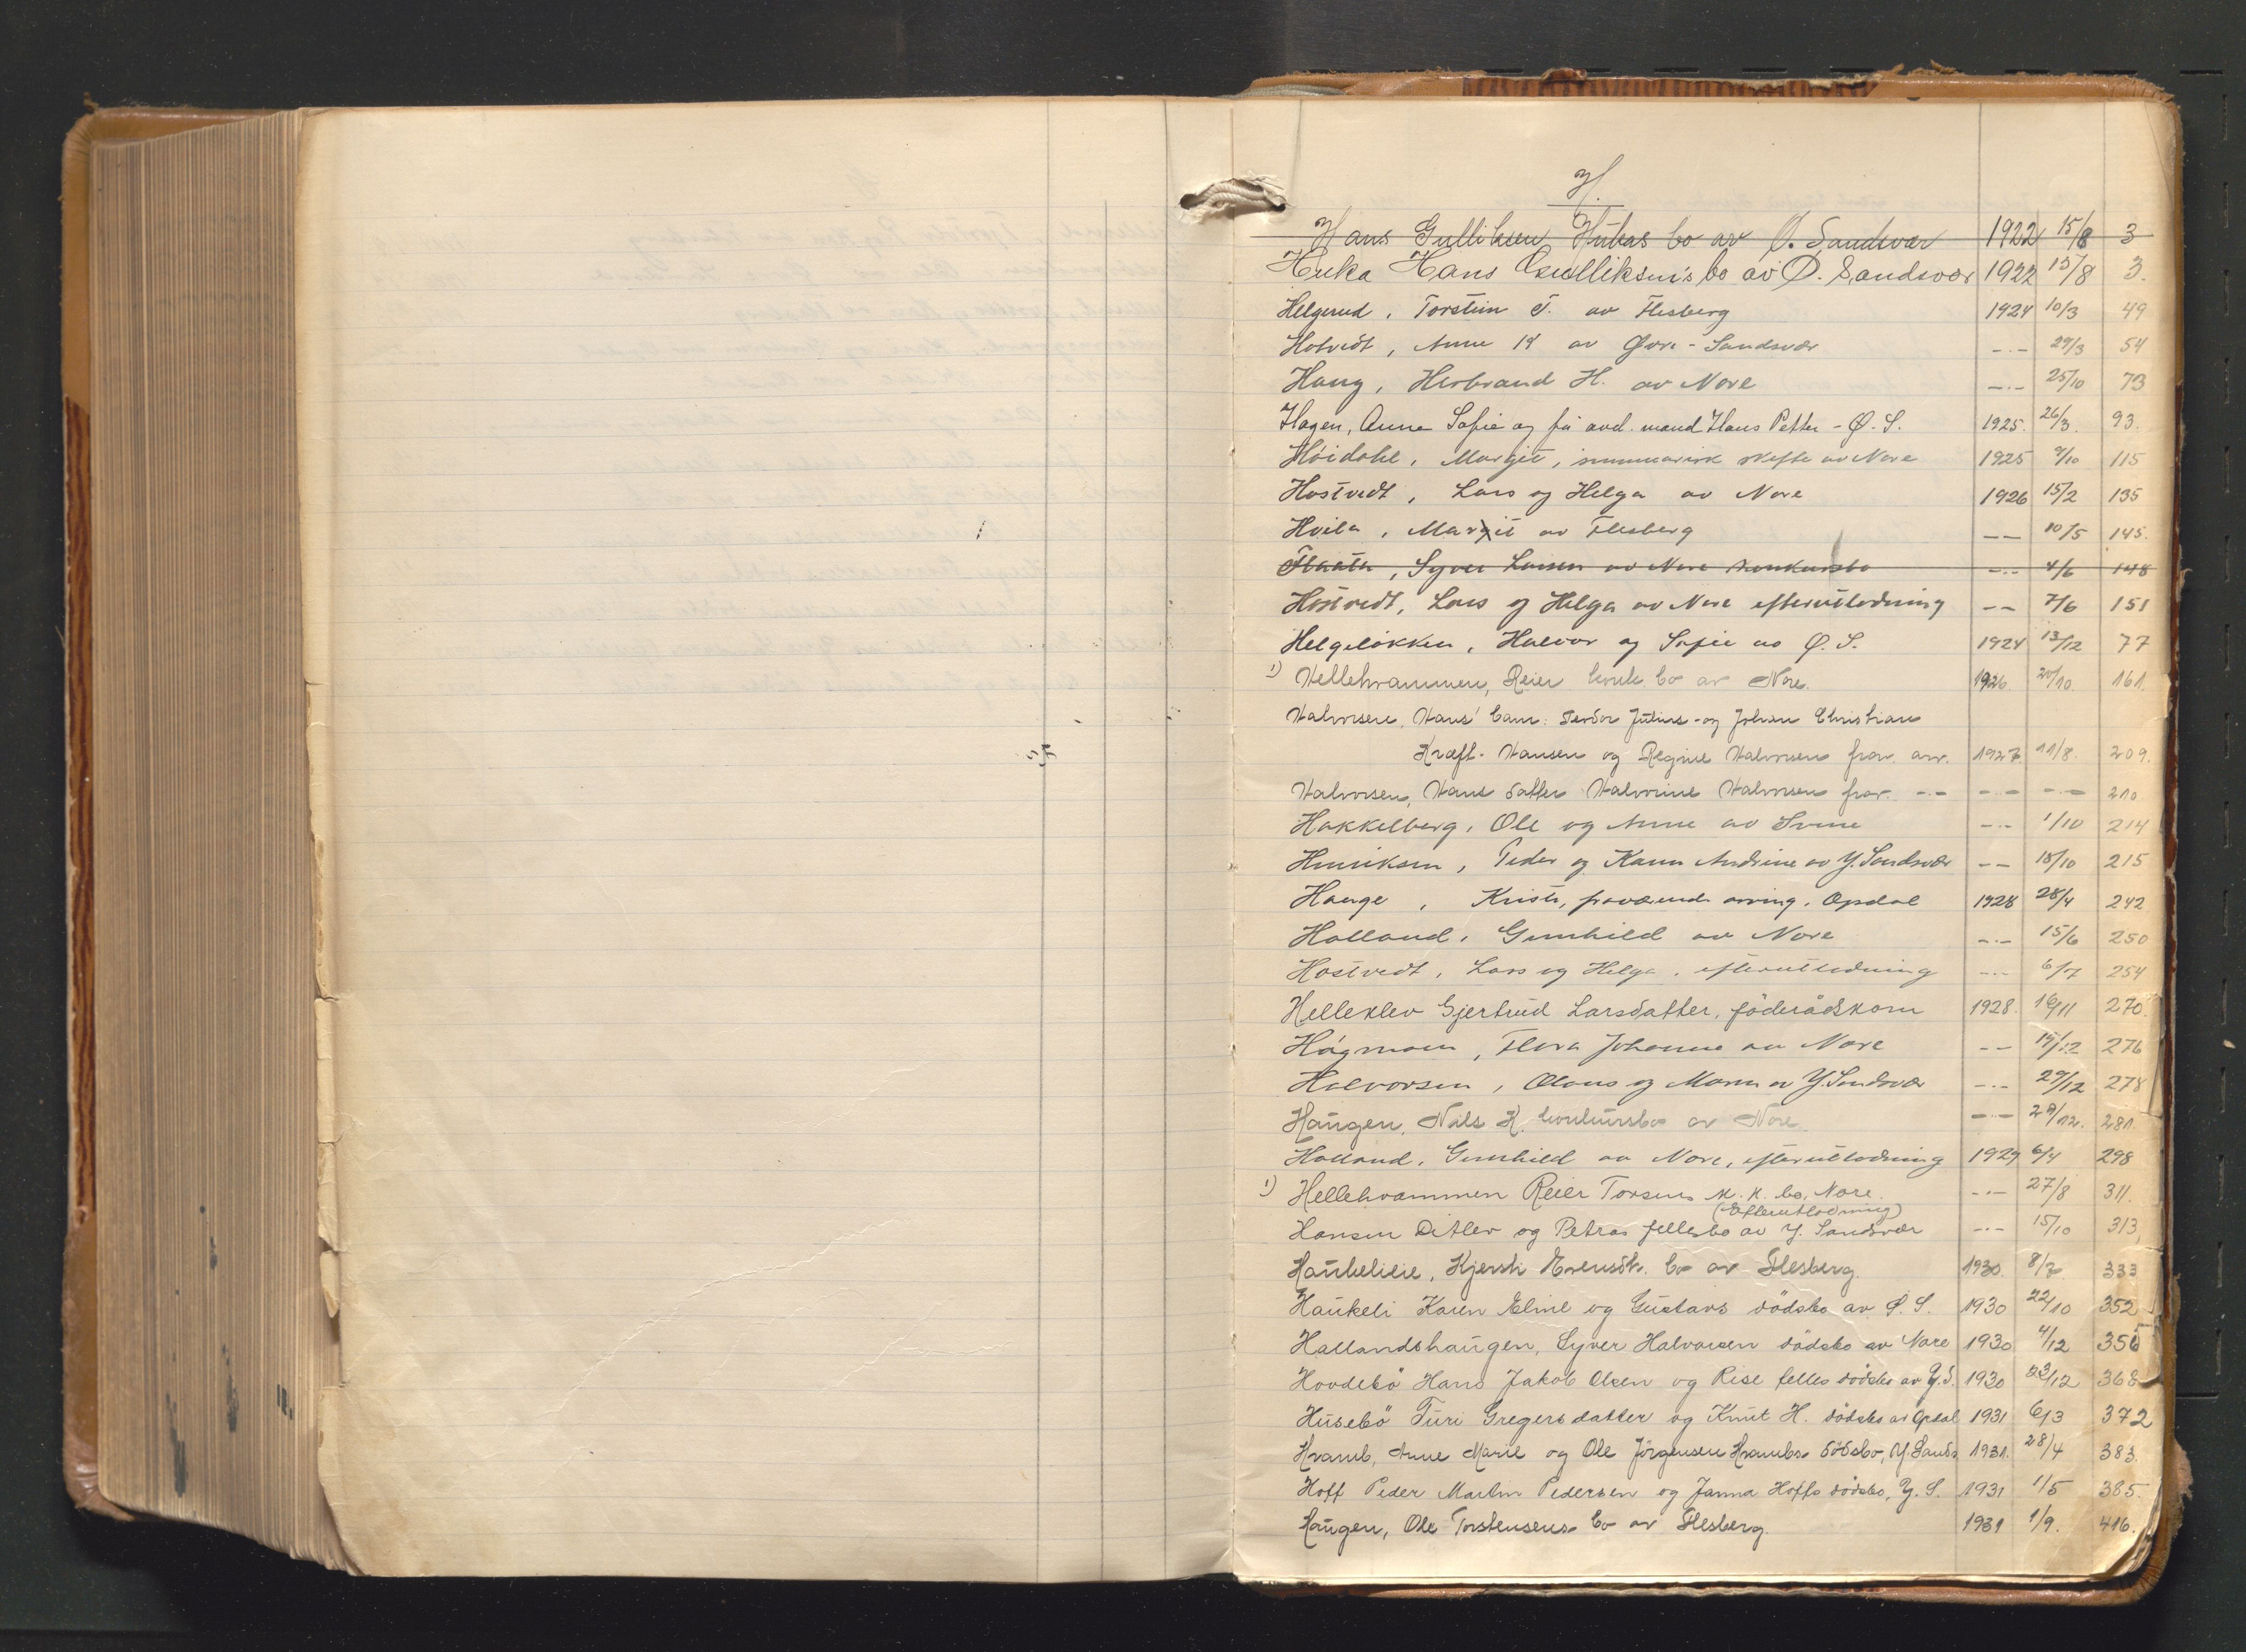 H.
Hans Gulliksen Hukas bo av Ø. Sandsvær 1922 15/8 3
Huka Hans Gulliksen's bo av Ø. Sandsvær 1922 15/8 3.
Helgerud, Torstein T. av Flesberg 1924 10/3 49
Hotvedt, Anne K av Øvre-Sandsvær -.- 29/3 54
Haug, Herbrand H. av Nore -.- 25/10 73
Hagen, Anne Sofie og før avd. mand Hans Petter - Ø. S. 1925. 26/3. 93.
Høidahl, Margit, summarisk skifte av Nore 1925 9/10 115
Hostvedt, Lars og Helga av Nore 1926 15/2 135
Hvila, Margit av Flesberg -- 10/5 145.
Flaata, Syver Larsen av Nore konkursbo -.- 4/6 148
Hostvedt, Lars og Helga av Nore efterutlodning -- 7/6 151
Helgeløkken, Halvor og Sofie av Ø. S. 1924 13/12 77
1) Hellehvammen, Reier konk. bo av Nore. 1926. 20/10. 161.
Halvorsen, Hans' barn: Teodor Julius- og Johan Christian
Kræft-Hansen og Regine Halvorsen frav. arv. 1927. 11/8. 209.
Halvorsen, Hans datter Halvorine Halvorsen frav. -.- -.- -.- 210.
Hakkelberg, Ole og Anne av Svene -.- 1/10 214
Henriksen, Peder og Karen Andrine av Y. Sandsvær -- 18/10 215
Hauge, Kristi, fraværende arving, Opdal 1928 28/4 242
Halland, Gunhild av Nore -.- 15/6 250
Hostvedt, Lars og Helga, efterutlodning -.- 6/7 254
Helleklev Gjertrud Larsdatter, føderådskone 1928. 16/11 270.
Høgmoen, Flora Johanne av Nore -- 15/12 276
Halvorsen, Olaus og Maren av Y. Sandsvær -.- 29/12 278
Haugen, Nils K. konkursbo av Nore. -.- 29/12. 281.
Halland, Gunhild av Nore, efterutlodning 1929 6/4 298
1) Hellehvammen Reier Torsens k.k. bo, Nore. -.- 27/8 311.
(Efterutlodning)
Hansen Ditlev og Petras fellesbo av Y. Sandsvær -.- 15/10 313,
Haukelieie, Kjersti Evensdtr. bo av Flesberg. 1930. 8/7 333
Haukeli Karen Eline og Gustavs dødsbo av Ø. S. 1930 22/10 352
Hallandshaugen, Syver Halvorsen dødsbo av Nore 1930 4/12 356
Hovdebø Hans Jakob Olsen og Rise felles dødsbo av Y.S. 1930 23/12 368
Husebø Turi Gregersdatter og Knut H. dødsbo av Opdal 1931 6/3 372
Hvamb, Anne Marie og Ole Jörgensen Hvambs dødsbo, Y. Sands 1931. 28/4 383.
Hoff Peder Martin Pedersen og Janna Hoffs dødsbo, Y. S. 1931 1/5 385.
Haugen, Ole Torstensens bo av Flesberg. 1931 1/9. 416.